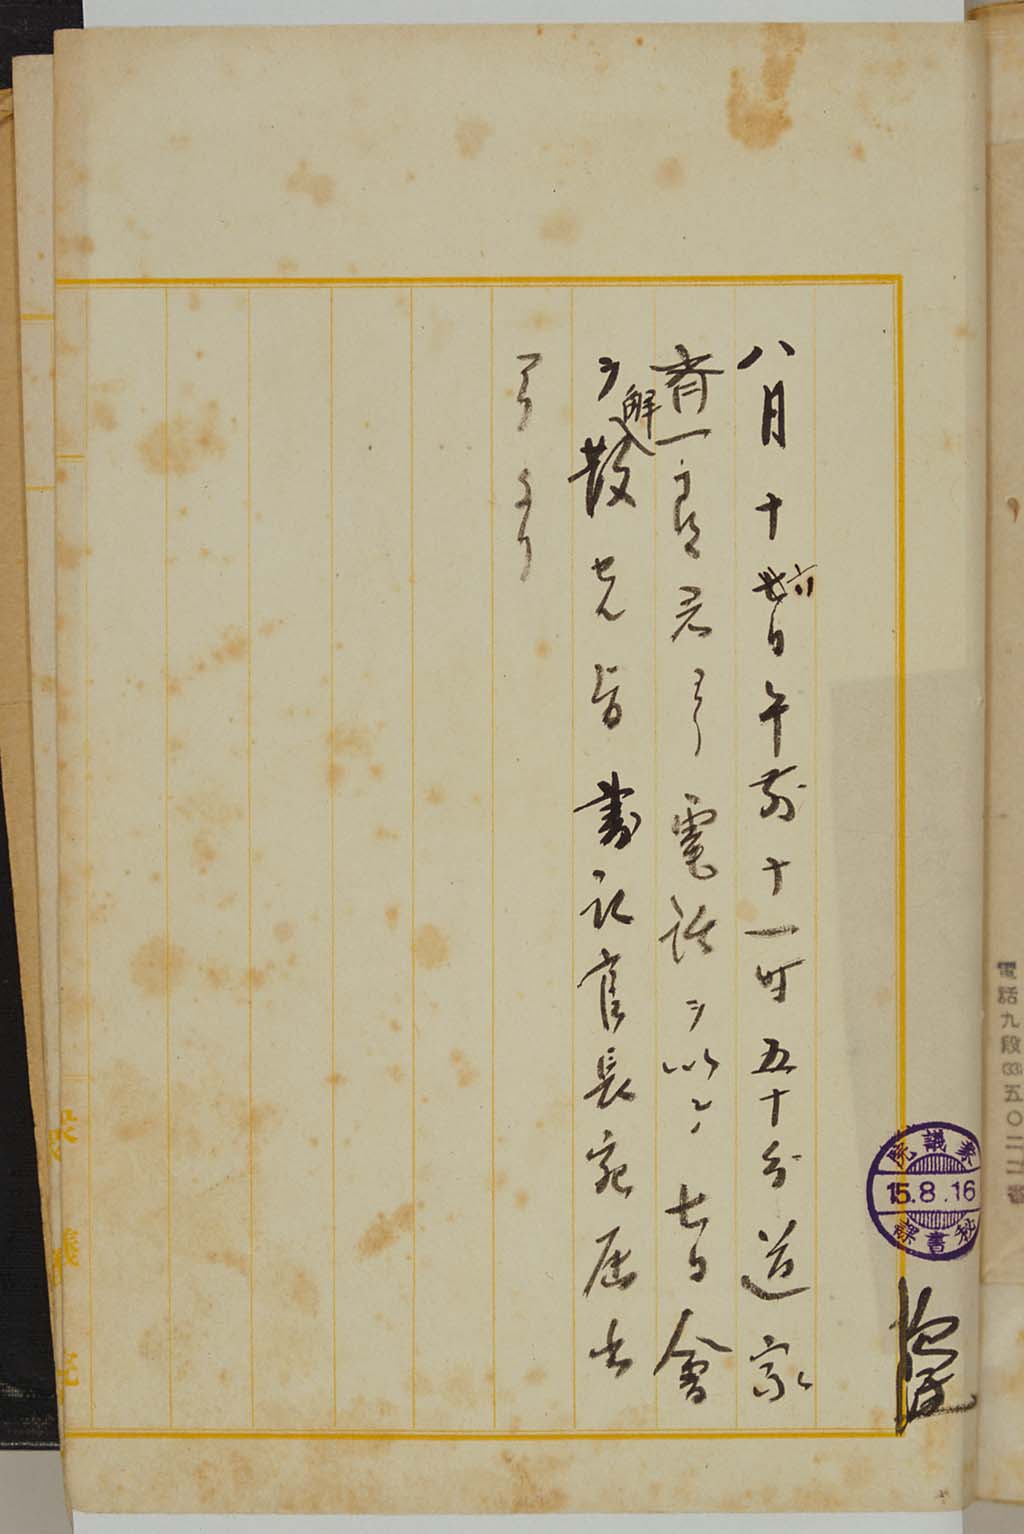 電話九段(33)五〇二二番
衆議院
15.8.16
秘書課
八月十六日午前十一時五十分道家
齊一郎君ヨリ電話ヲ以テ七日會
ヲ解散セル旨書記官長宛届出
アリタリ
衆議院